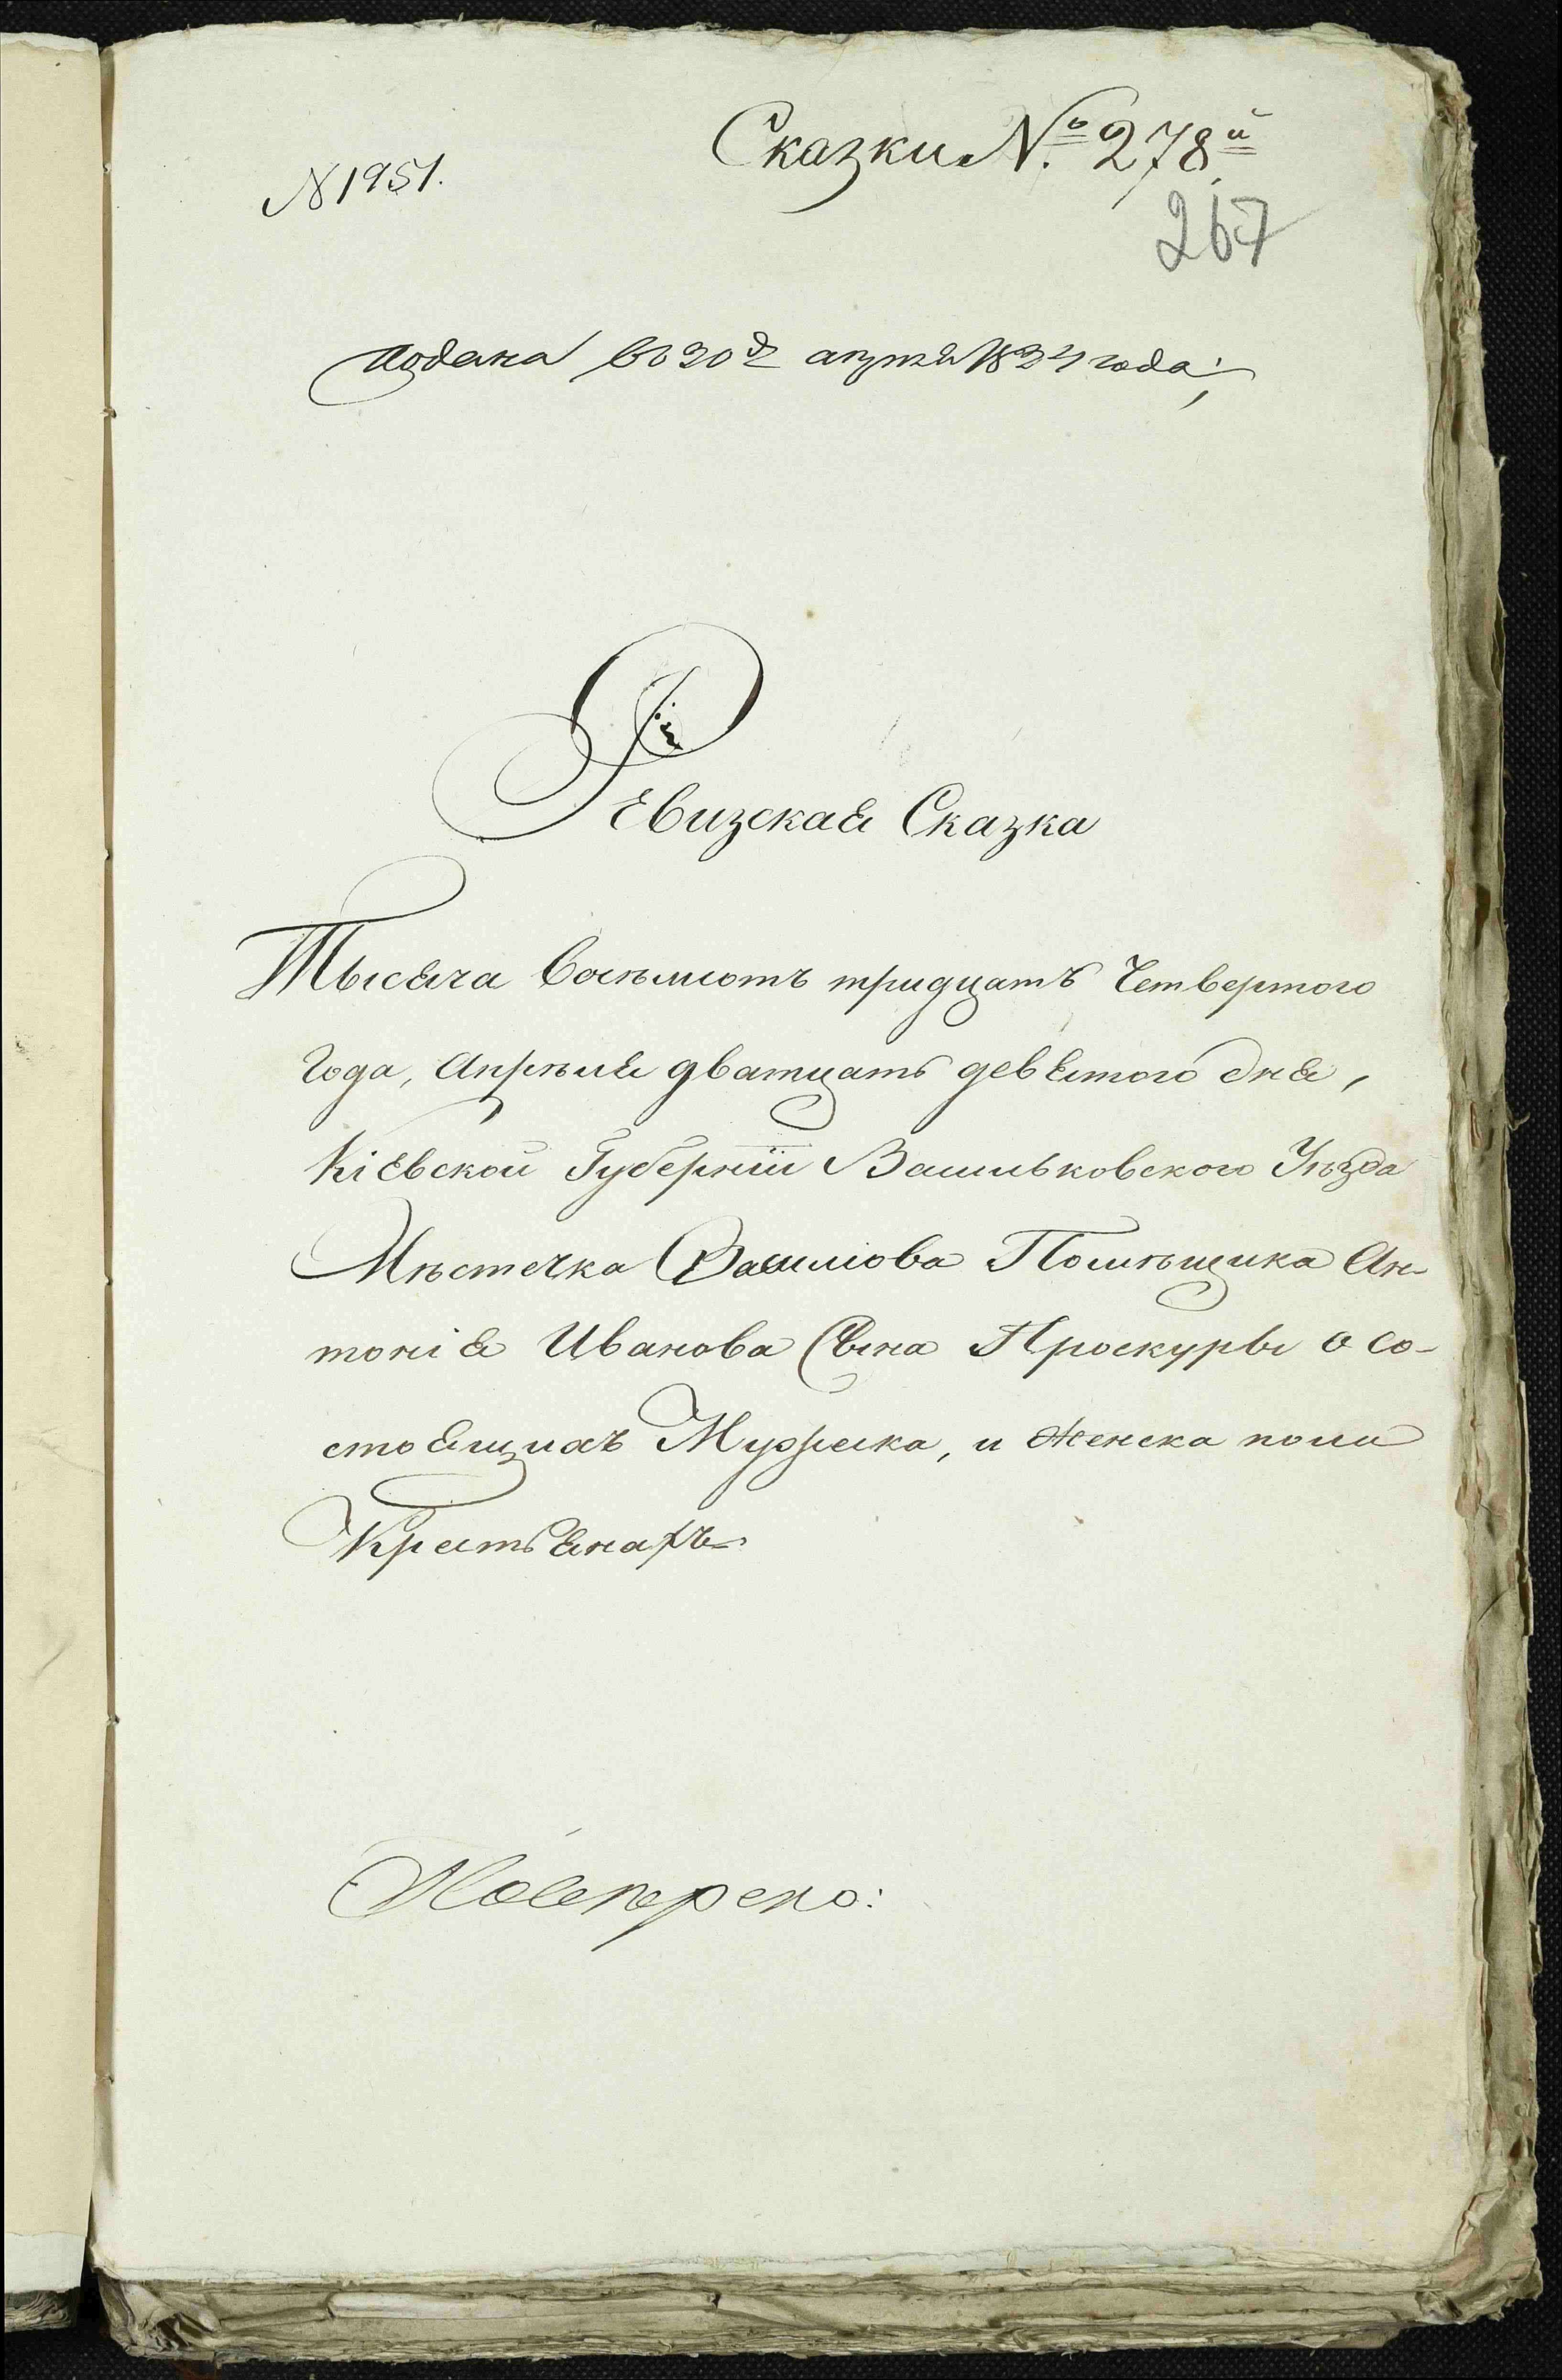 Сказки № 278й
№ 1951.
267
подана въ 30й апреля 1834 года;
Ревизская Сказка
Тысяча Восѣмсотъ тридцать Четвертого
Года, Апрѣля дватцать девятого дня,
Кіевской Губерніи Васильковского Уѣзда
Мѣстечка Василіова Помѣщика Ан-
тонія Иванова Сына Проскуры о со-
стоящихъ Мужеска, и Женска пола
Крестьянахъ